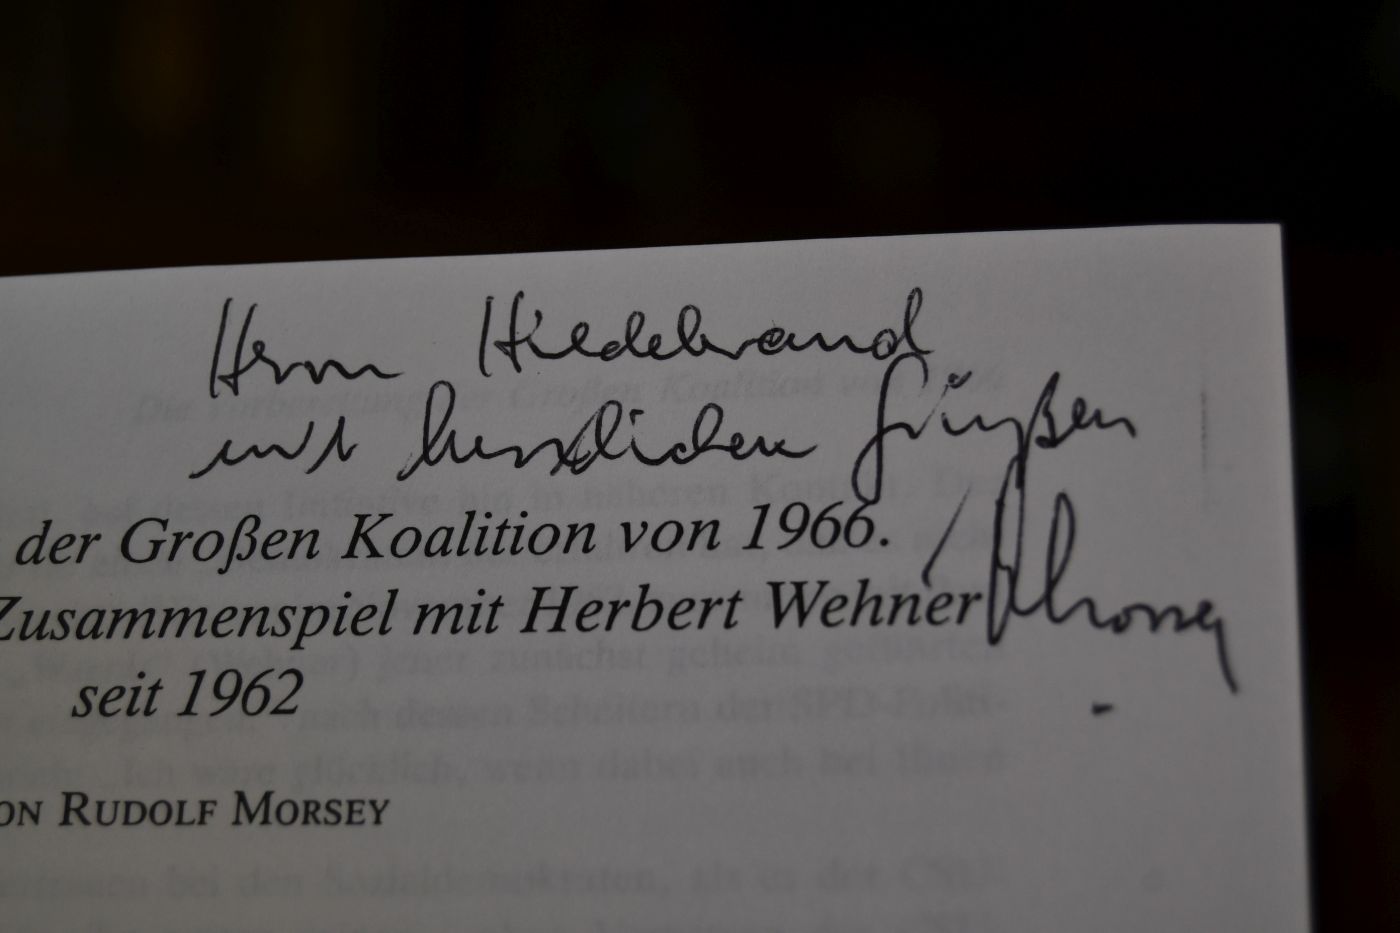 Herrn Hildebrand
mit herzlichen Grüßen
der Großen Koalition von 1966.
Zusammenspiel mit Herbert Wehner
RMorsey
seit 1962
ON RUDOLF MORSEY